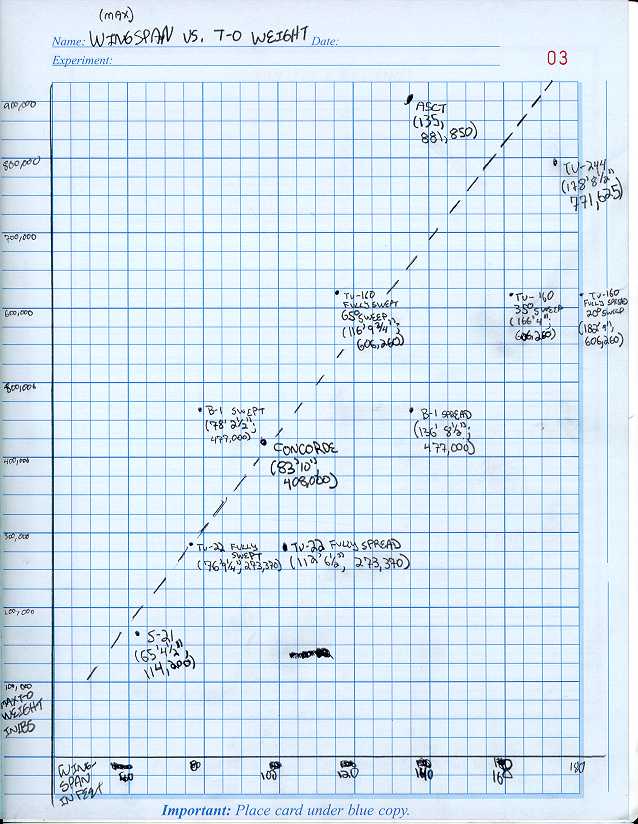 (MAX)
Name: WINGSPAN VS. T-O WEIGHT Date:
Experiment:
03
900,000
ASCT
(135,
881,850)
800,000
TU-244
(178' 8 1/2";
771,625)
700,000
TU-160
FULLY SWEPT
65° SWEEP
(116' 9 3/4";
606,260)
TU-160
35° SWEEP
(166' 4";
606,260)
TU-160
FULLY SPREAD
20° SWEEP
(182' 9";
606,260)
600,000
500,000
B-1 SWEPT
(78' 2 1/2";
477,000)
B-1 SPREAD
(136' 8 1/2";
477,000)
CONCORDE
(83' 10";
408,000)
400,000
300,000
TU-22 FULLY
SWEPT
(76' 4 1/4"; 273,370)
TU-22 FULLY SPREAD
(112' 6 1/2"; 273,370)
200,000
S-21
(65' 4 1/2";
114,200)
100,000
MAX T-O
WEIGHT
IN LBS
WING-
SPAN
IN FEET
60
80
100
120
140
160
180
Important: Place card under blue copy.